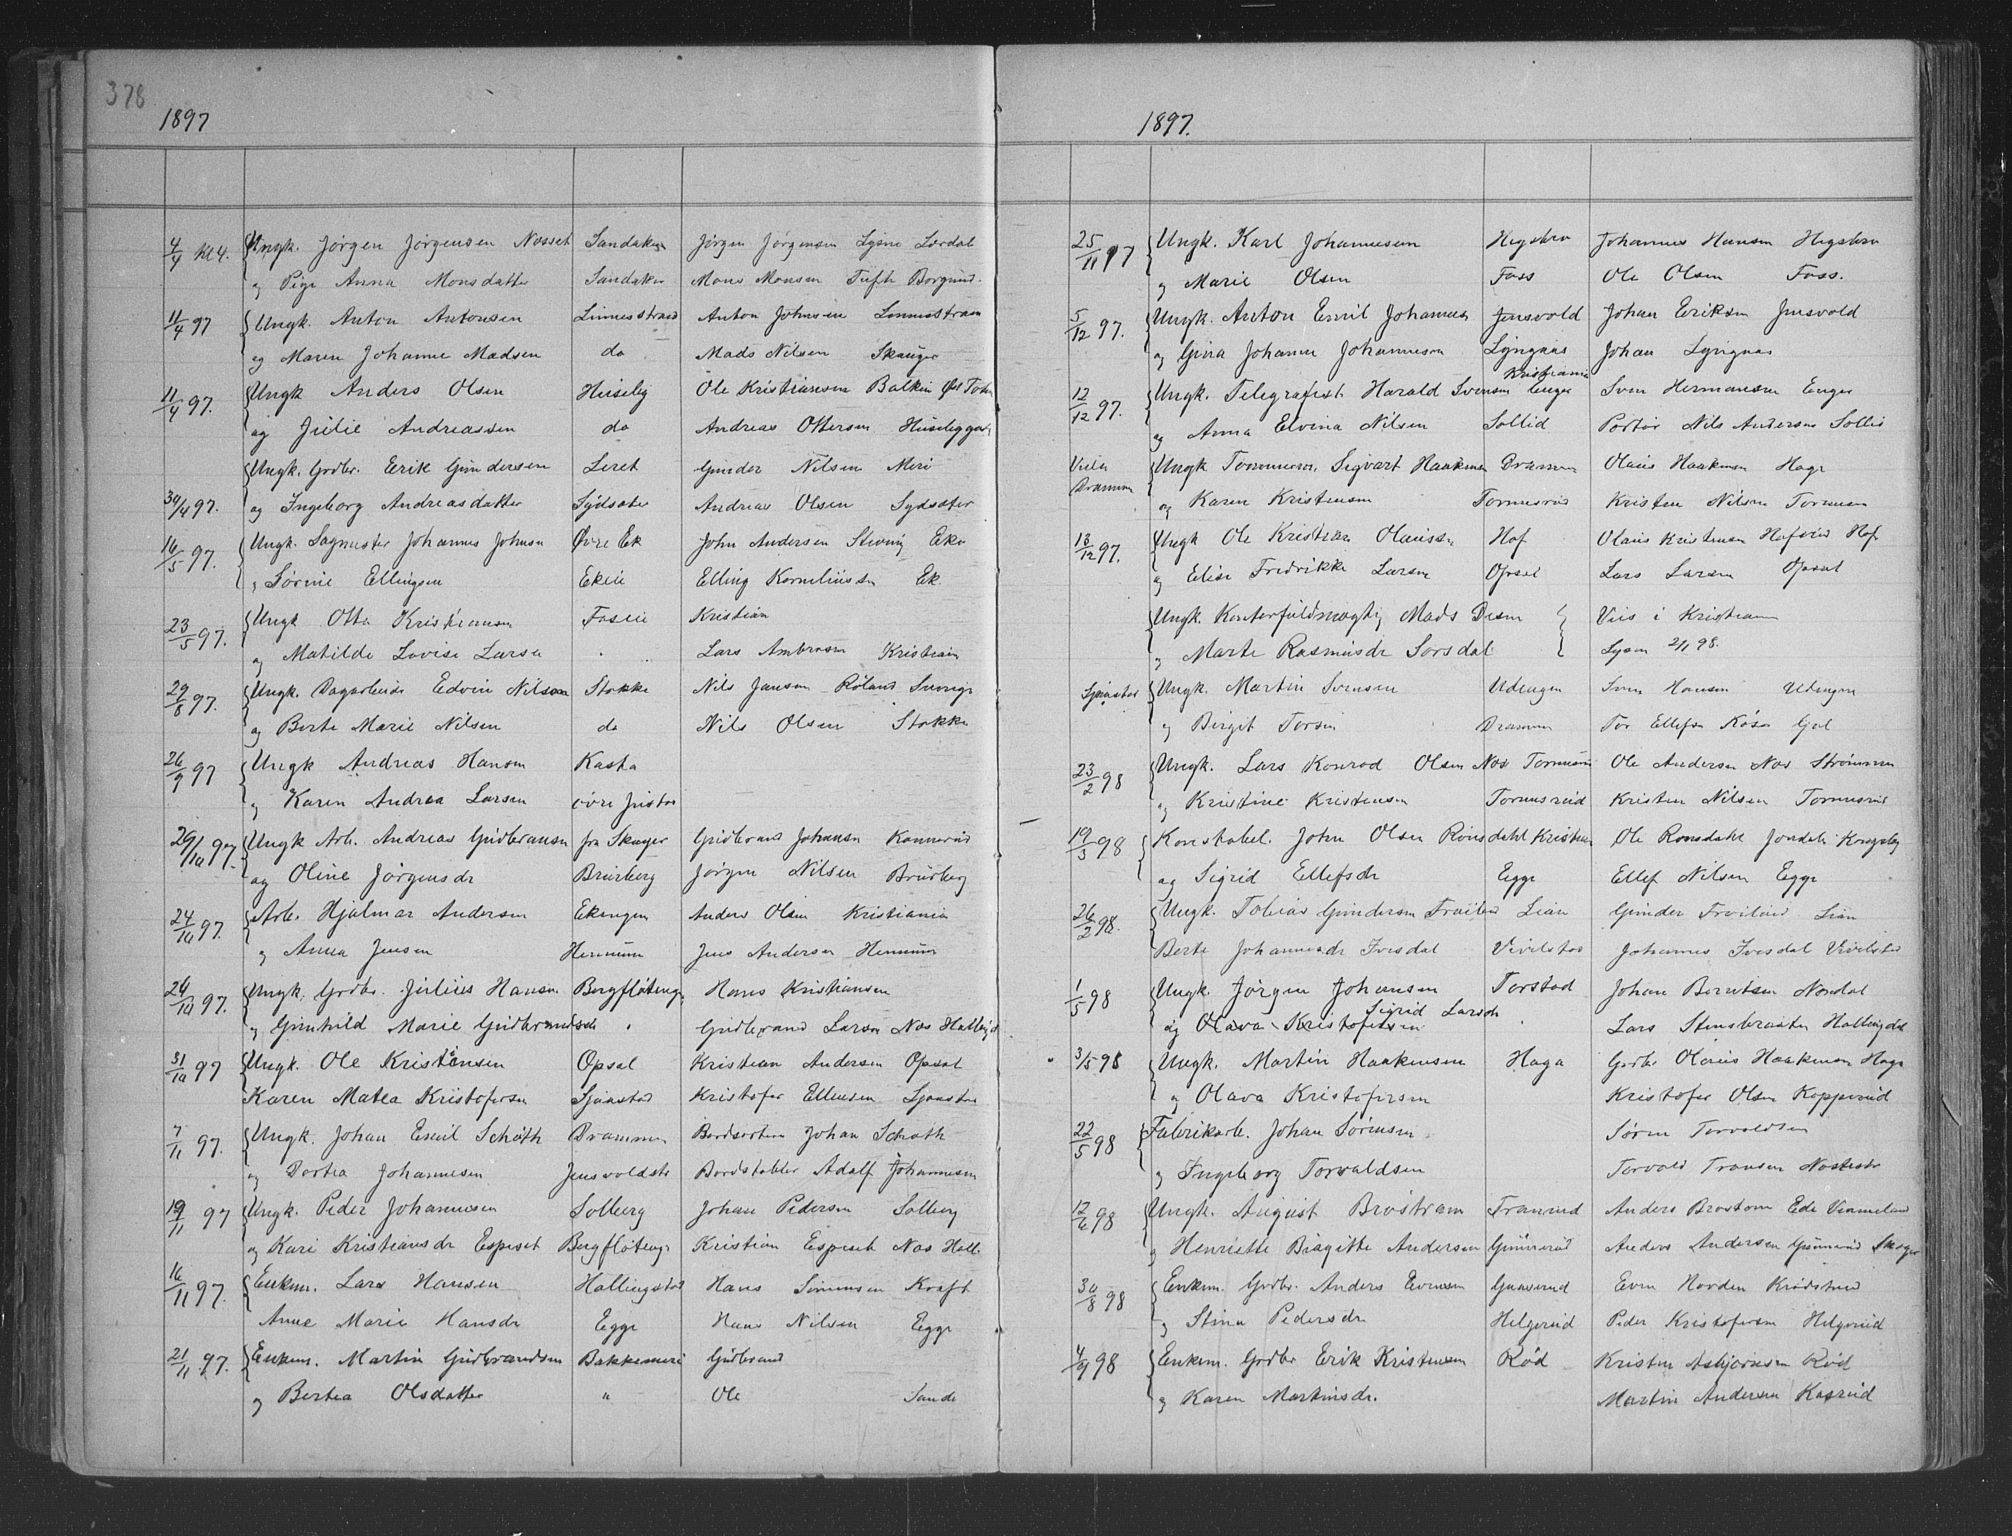 378
1897
4/4 Kl 4. Ungk. Jørgen Jørgensen Nosset Sandaker Jørgen Jørgensen Lysne Lærdal
og Pige Anna Monsdatter Sandaker Mons Monsen Tuft Borgund.
11/4 97 Ungk. Anton Antonsen Linnesstrand Anton Johnsen Linnesstrand
og Maren Johanne Madsen do Mads Nilsen Skauger
11/4 97. Ungk Anders Olsen Huseby Ole Kristiansen Balken Øst Toten
og Julie Andreassen do Andreas Ottersen
Ungk. Grdbr. Erik Gundersen Leret Gunder Nilsen
30/4 97. og Ingeborg Andreasdatter Sydsæter Andreas Olsen Sydsæter
16/5 97. Ungk. Sagmester Johannes Johnsen Øvre Ek John Andersen Eke
" Sørine Ellingsen Ekeie Elling Korneliussen Ek.
23/5 97. Ungk Otto Kristiansen Fosseie Kristian
og Matilde Lovise Larsen " Lars Ambrosen Kristian
29/8 97. Ungk. Dagarbeider Edvin Nilsson Stokke Nils Jansen Röland Sverige
og Berte Marie Nilsen do Nils Olsen Stokke
26/9 97 Ungk Andreas Hansen Kasta
og Karen Andrea Larsen øvre
26/10 97. Ungk Arb. Andreas Gudbransen fra Skauger Gudbrand Johansen
og Oline Jørgensdr Bruberg Jørgen Nilsen Bruberg
24/10 97. Arb. Hjalmar Andersen Ekengen Anders Olsen Kristiania
og Anna Jensen Hennum Jens Andersen Hennum
24/10 97. Ungk. Grdbr. Julius Hansen Bergfløteng Hans Kristiansen
og Gunhild Marie Gudbrandsdr " Gudbrand Larsen Nos Hallingd
31/10 97 Ungk. Ole Kristiansen Opsal Kristian Andersen Opsal
Karen Matea Kristofersen Sjåstad Kristofer Ellensen Sjåstad
7/11 97. Ungk. Johan Emil Schøth Drammen Johan Schøth
og Dortea Johannesen Bordstabler Adolf Johannesen
19/11 97 Ungk. Peder Johannesen Solberg Johan Pedersen Solberg
og Kari Kristiansdr Espeset Bergfløteng Kristian Espeset Nos Hall.
16/11 97. Enkem. Lars Hansen Hallingstad Hans Simensen Kroft
Anne Marie Hansdr Egge Hans Nilsen Egge
21/11 97. Enkem. Martin Gudbrandsen Bakkemeri Gudbrand
og Bertea Olsdatter " Ole Sande
1897.
25/11 97 Ungk. Karl Johannesen Hegsbro Johannes Hansen Hegsbro
og Marie Olsen Foss Ole Olsen Foss.
5/12 97. Ungk. Anton Emil Johannesen Jensvold Johan Eriksen Jensvold
og Gina Johanne Johannesen Lyngaas Johan Lyngaas
Kristiania
12/12 97. Ungk. Telegrafist. Harald Svensen Enger Sven Hermansen Enger
og Anna Elvina Nilsen Sollid Portør Nils Andersen Sollid
Viela Drammen Ungk Tømmerm. Sigvart Haakensen Drammen Olaus Haakensen Haga
og Karen Kristensen Tormusrud Kristen Nilsen Tormusrud
18/12 97. Ungk Ole Kristian Olaussen Hof Olaus Kristensen Hof
og Elise Fredrikke Larsen Opsal Lars Larsen Opsal
Ungk. Kontorfuldmægtig Mads Viet i Kristiania
og Marte Rasmusdr Sørsdal Lysn 2/1 98.
Sjåstad Ungk. Martin Svensen Udengen Sven Hansen Udengen
og Birgit Torsen Drammen Tor Ellefsen Gol
23/2 98 Ungk. Lars Konrad Olsen Nos Tormusrud Ole Andersen Nos Strømmen
og Kristine Kristensen Tormusrud Kristen Nilsen Tormusrud
19/3 98 Konstabel. John Olsen Ronsdahl Kristiania Ole Ronsdahl Jondalen Kongsberg
og Sigrid Ellefsdr Egge Ellef Nilsen Egge
26/2 98. Ungk. Tobias Gundersen Froiland Lian Gunder Froiland Lian
Berte Johannesdr Ivesdal Vivelstad Johannes Ivesdal Vivelstad
1/5 98 Ungk. Jörgen Johansen Torstad Johan Berntsen
Sigrid Larsdr
og Olava Kristofersen " Lars Stensbraaten Hallingdal
3/5 98 Ungk. Martin Haakensen Haga Gdbr Olaus Haakensen Haga
og Olava Kristofersen Kristofer Olsen Kopperud
22/5 98 Fabrikarb. Johan Sørensen Søren Torvaldsen
og Ingeborg Torvaldsen Torvald Transen
12/6 98 Ungk. August Broström Tranrud Anders Broström Eda Vermeland
og Henriette Birgitte Andersen Gunnerud Anders Andersen Gunnerud Skoger
30/8 98 Enkem. Grdbr. Anders Evensen Gunnerud Even Horden Krødsrud
og Stina Pedersdr Helgerud Peder Kristofersen Helgerud
4/9 98 Enkem. Grdbr Erik Kristensen Rød Kristen Asbjørnsen Rød
og Karen Martinsdr. Martin Andersen Kasrud